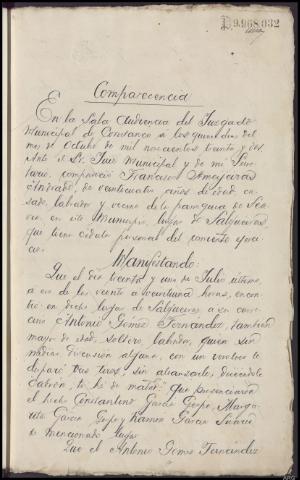 D.9.968.032
Comparecencia
En la Sala Audiencia del Juzgado
Municipal de a los quince días del
mes de Octubre de mil novecientos treinta y dos.
Ante el Sr. Juez Municipal y de mi Secre-
tario, compareció Francisco
Andrade, de veinticuatro años de edad ca-
sado, labrador y vecino de la parroquia de
en este Municipio, lugar de Salgueiras,
que tiene cédula personal del corriente ejerci-
cio.
Manifestando:
Que el día treinta y uno de Julio último,
a eso de las veinte a veintiuna horas, encon-
tró en dicho lugar de Salgueiras a su conve-
cino Antonio Gómez Fernandez, también
mayor de edad, soltero, labrador, quien sin
mediar discusión alguna, con un revolver le
disparó tres tiros, sin alcanzarle, diciéndole
Cabrón, te he de matar; que presenciaron
el hecho Constantino García Marga-
rita García y Ramón García Suárez
de mencionado lugar.
Que el Antonio Gómez Fernández